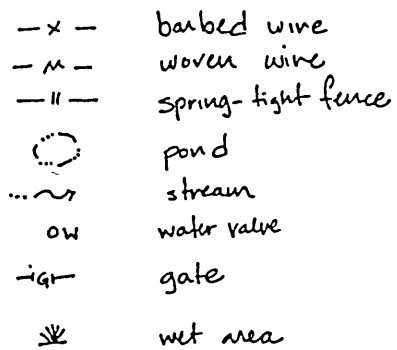 — x — barbed wire
— M — woven wire
— 11 — spring-tight fence
pond
stream
OW water valve
IGI gate
wet area